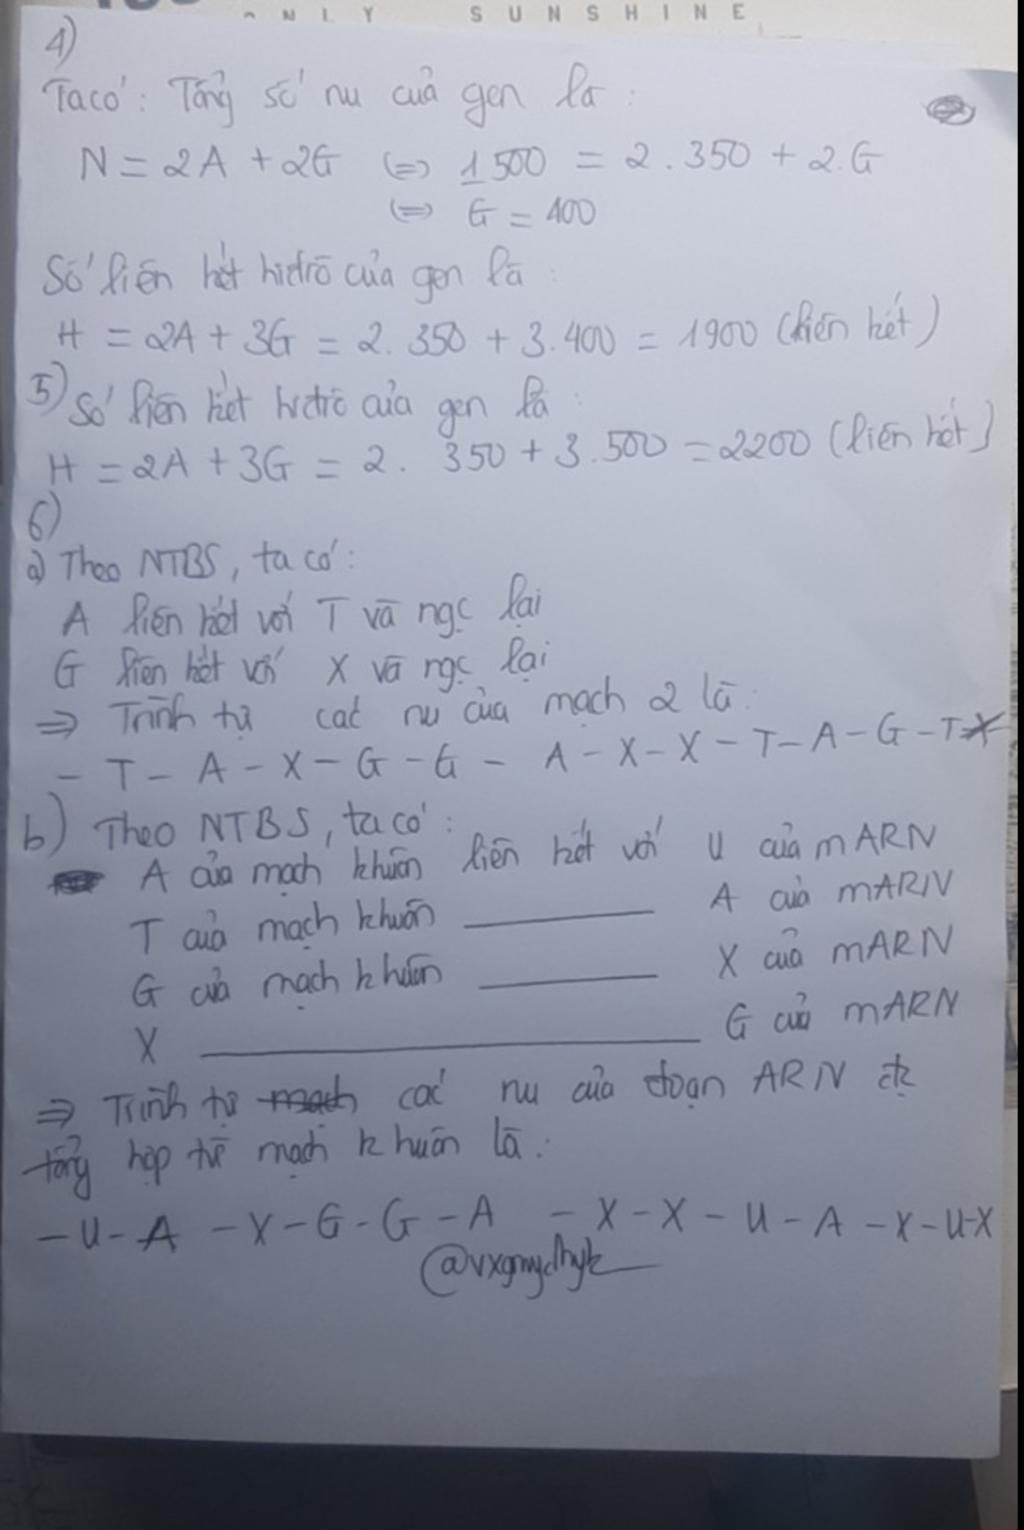 ONLY SUNSHINE
4)
Ta có: Tổng số nu của gen là:
N = 2A + 2G (=) 1500 = 2.350 + 2.G
(=) G = 400
Số liên kết hiđrô của gen là:
H = 2A + 3G = 2.350 + 3.400 = 1900 (liên kết)
5) Số liên kết hiđrô của gen là:
H = 2A + 3G = 2. 350 + 3.500 = 2200 (liên kết)
6)
a) Theo NTBS, ta có:
A liên kết với T và ngc lại
G liên kết với X và ngc lại
⇒ Trình tự các nu của mạch 2 là:
– T – A – X – G – G – A – X – X – T – A – G – T X
b) Theo NTBS, ta có:
A của mạch khuôn liên kết với U của mARN
T của mạch khuôn ——— A của mARN
G của mạch khuôn ——— X của mARN
X ——————— G của mARN
⇒ Trình tự mạch các nu của đoạn ARN đc
tổng hợp từ mạch khuôn là:
– U – A – X – G – G – A – X – X – U – A – X – U – X